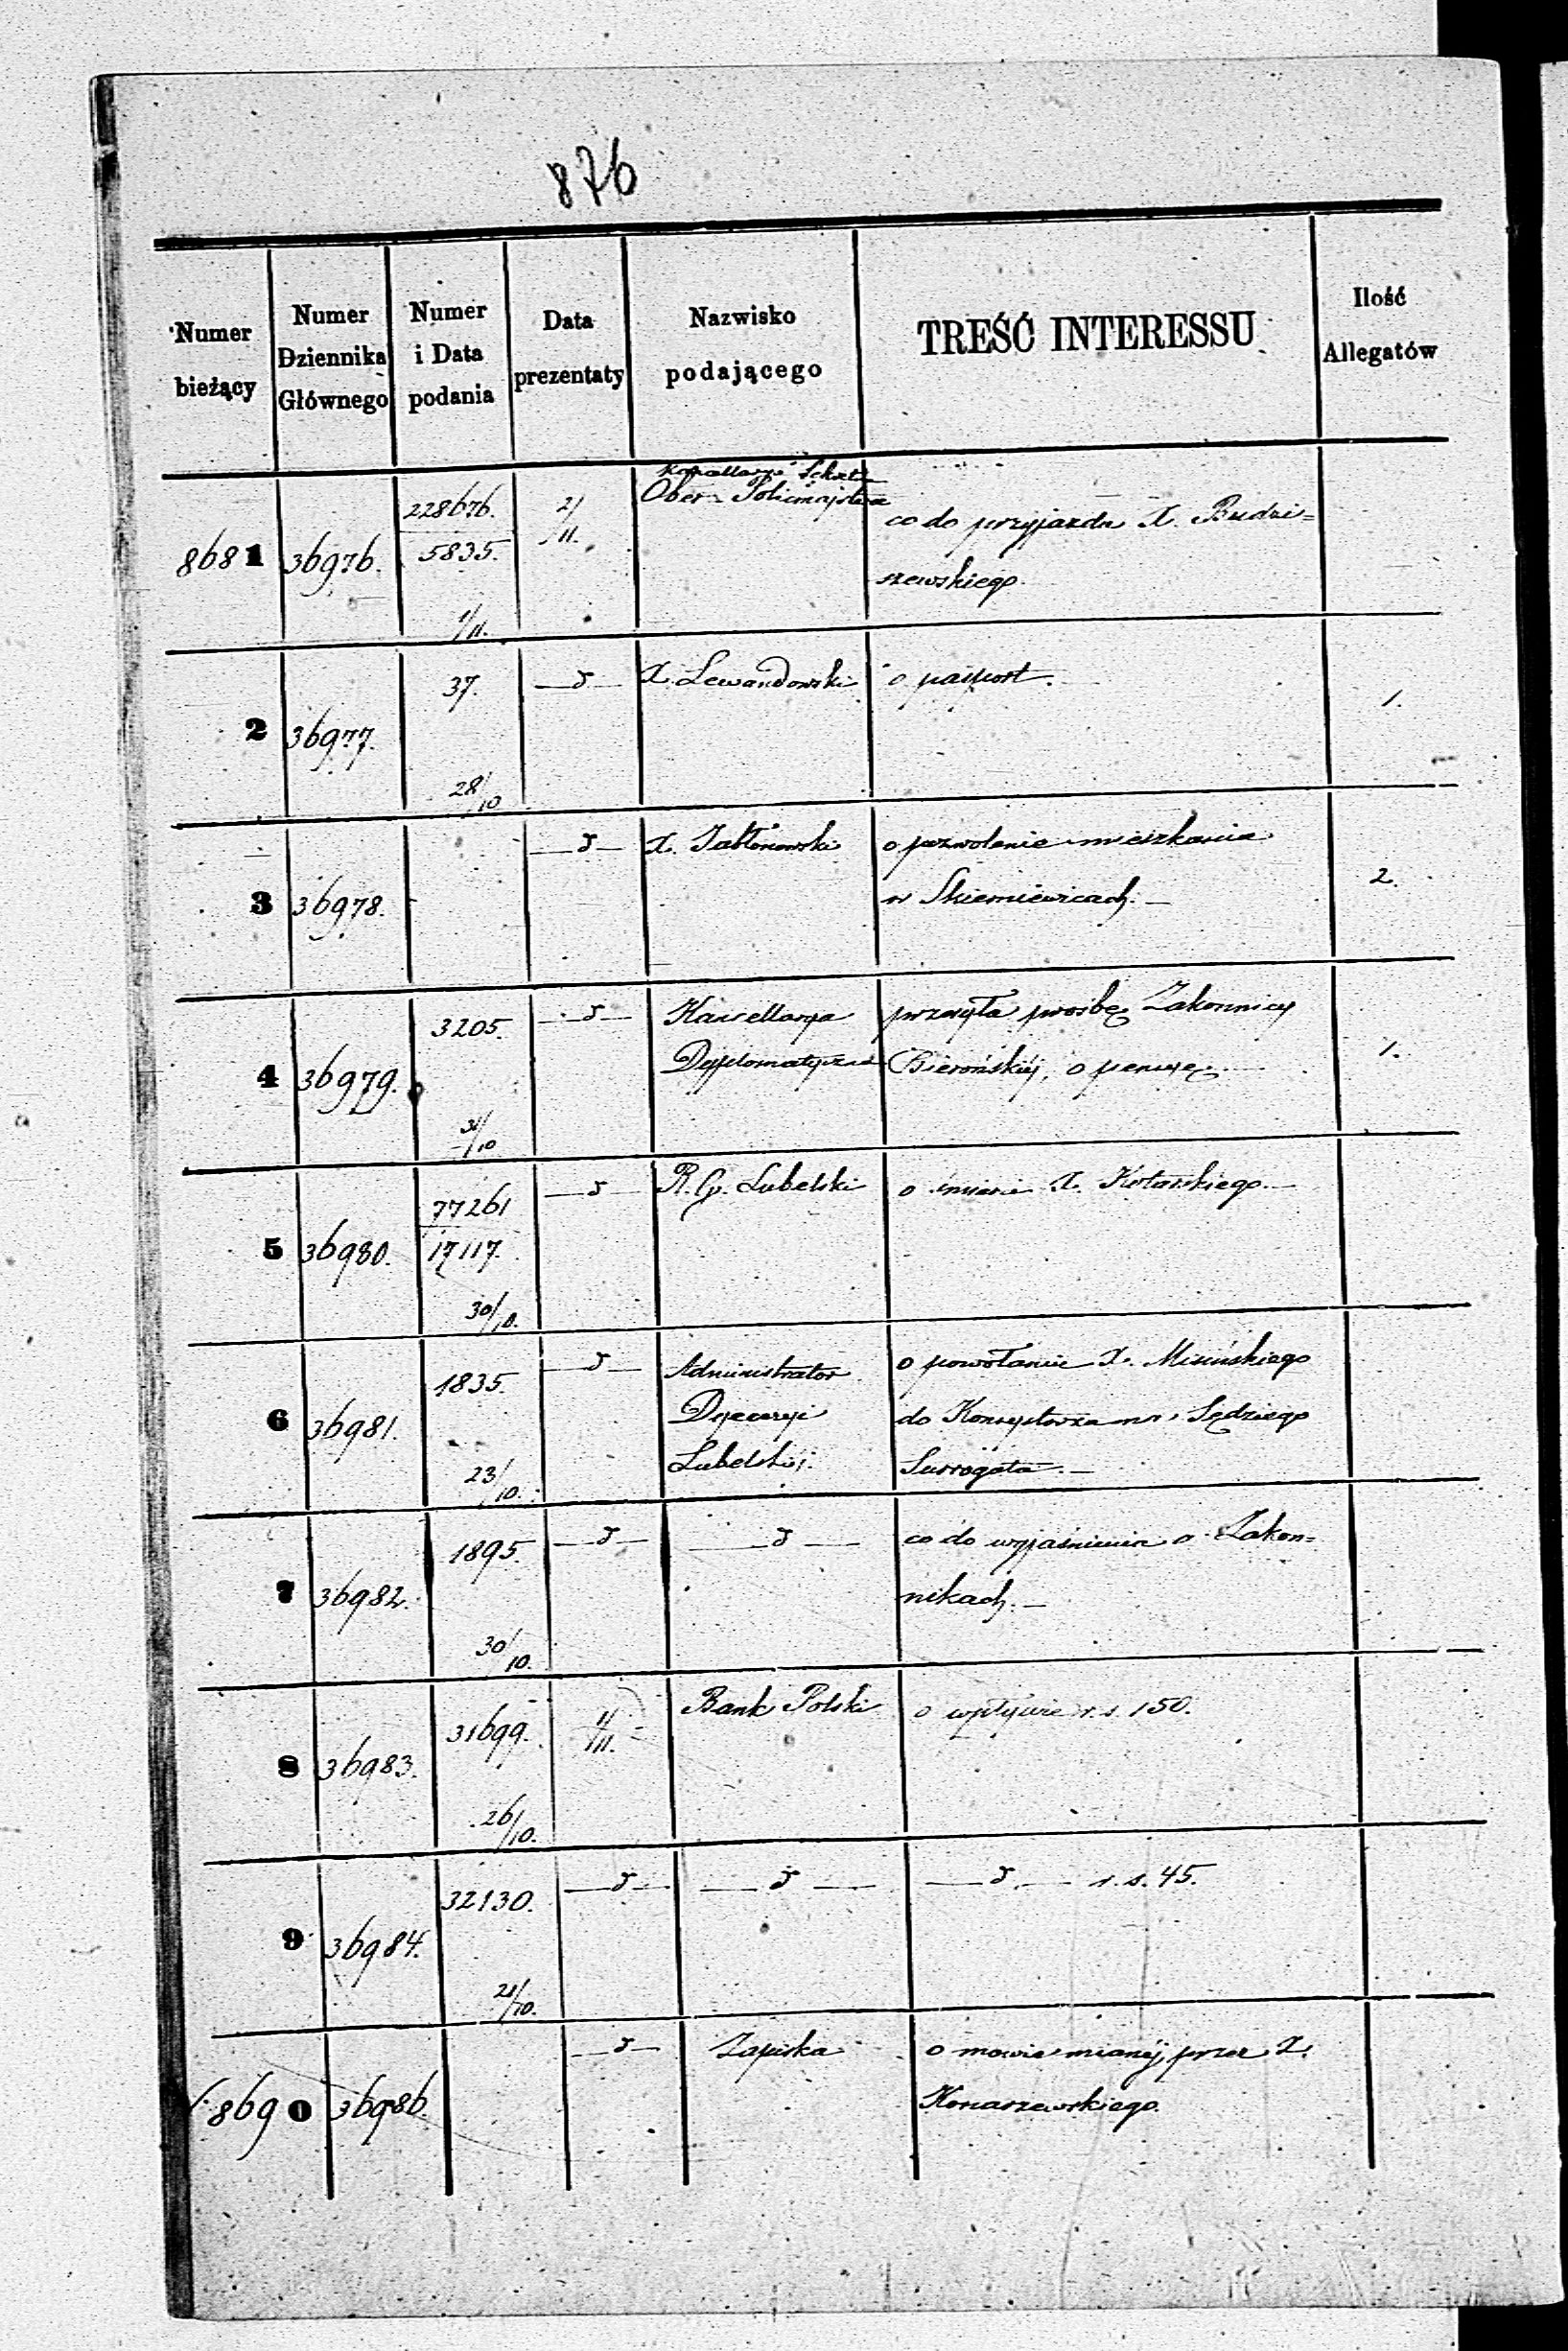 876
Numer bieżący
Numer Dziennika Głównego
Numer i Data podania
Data prezentaty
Nazwisko podającego
TREŚĆ INTERESSU
Ilość Allegatów
8681 36976. 228676. 5835. 1/11. 2/11. Ober-Policmajstra co do przyjazdu X. Budzi=
szewskiego.
2 36977. 37. 28/10 —d— X. Lewandowski o paszport. 1.
3 36978. —d— X. Jabłonowski o pozwolenie mieszkania
w Skierniewicach. — 2.
4 36979. 3205. 31/10 —d— Kancellarya przesyła prośbę Zakonnicy
Dyplomatyczna o pensyę. 1.
5 36980. 77261 17117. 30/10. —d— R. G. Lubelski o śmierci X. —
6 36981. 1835. 23/10. —d— Administrator o powołanie X. Misińskiego
Dyecezyi do Konsystorza na Sędziego
Lubelskiéj. Surrogata. —
7 36982. 1895. 30/10. —d— —d— co do wyjaśnienia o Zakon=
nikach. —
8 36983. 31699. 26/10. Bank Polski o wpływie r. s. 150.
9 36984. 32130. —d— —d— —d— r. s. 45.
8690 36986. —d— Zapiska o mowie mianéj przez X.
Konarzewskiego.